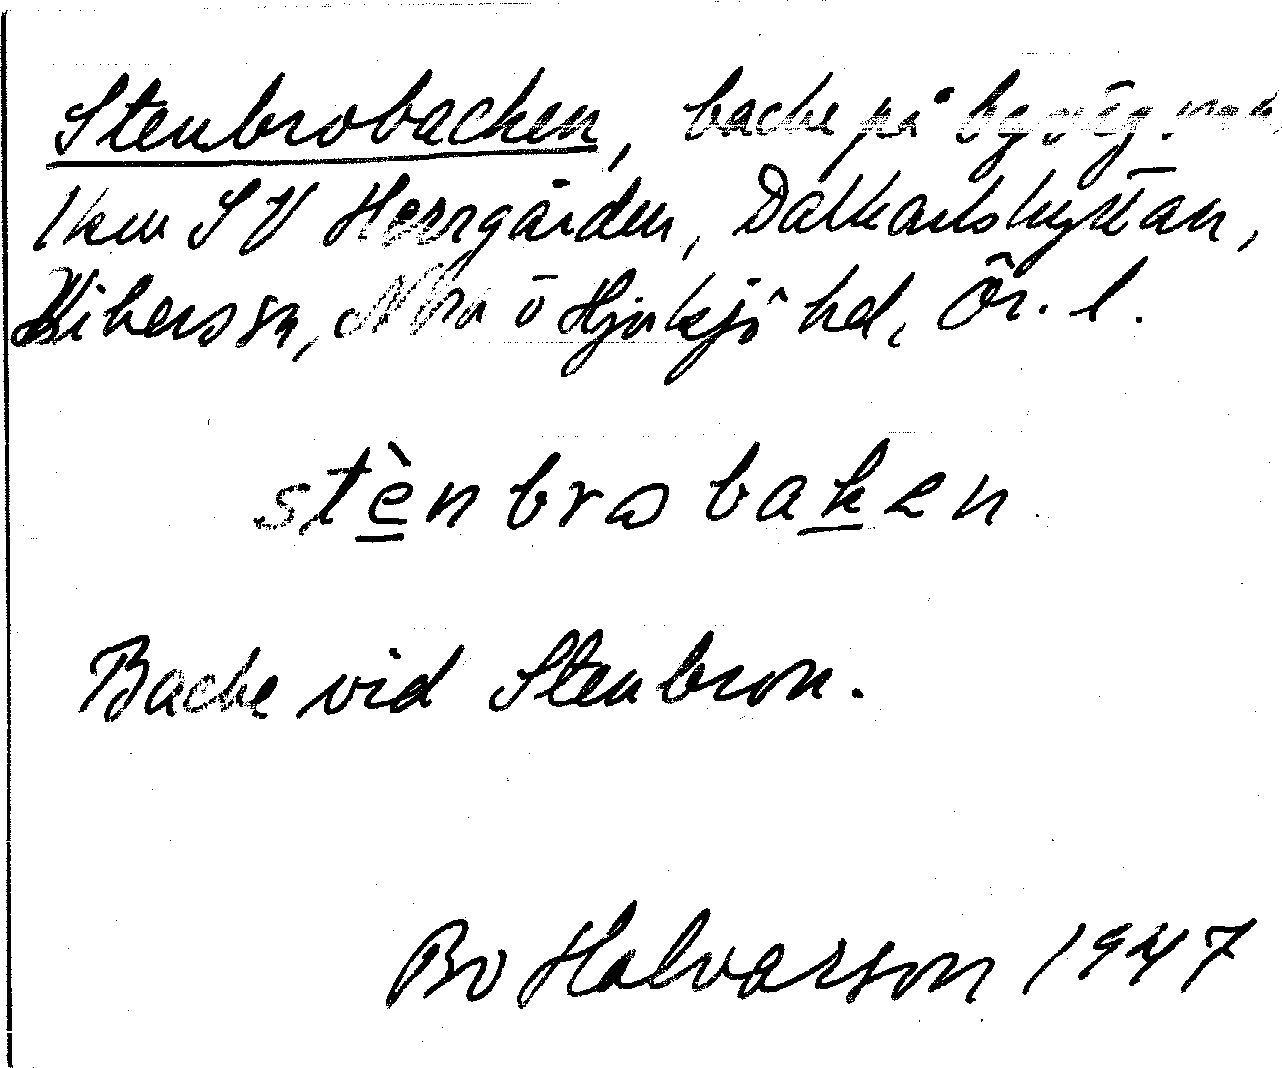 Stenbrobacken, backe på bygväg. 
1 km SV Herrgården, Dalkarlshyttan,
Vikers sn, Nora o Hjulsjö hd, Ör. l.
stènbrobaken
Backe vid Stenbron.
Bo Halvarson 1947